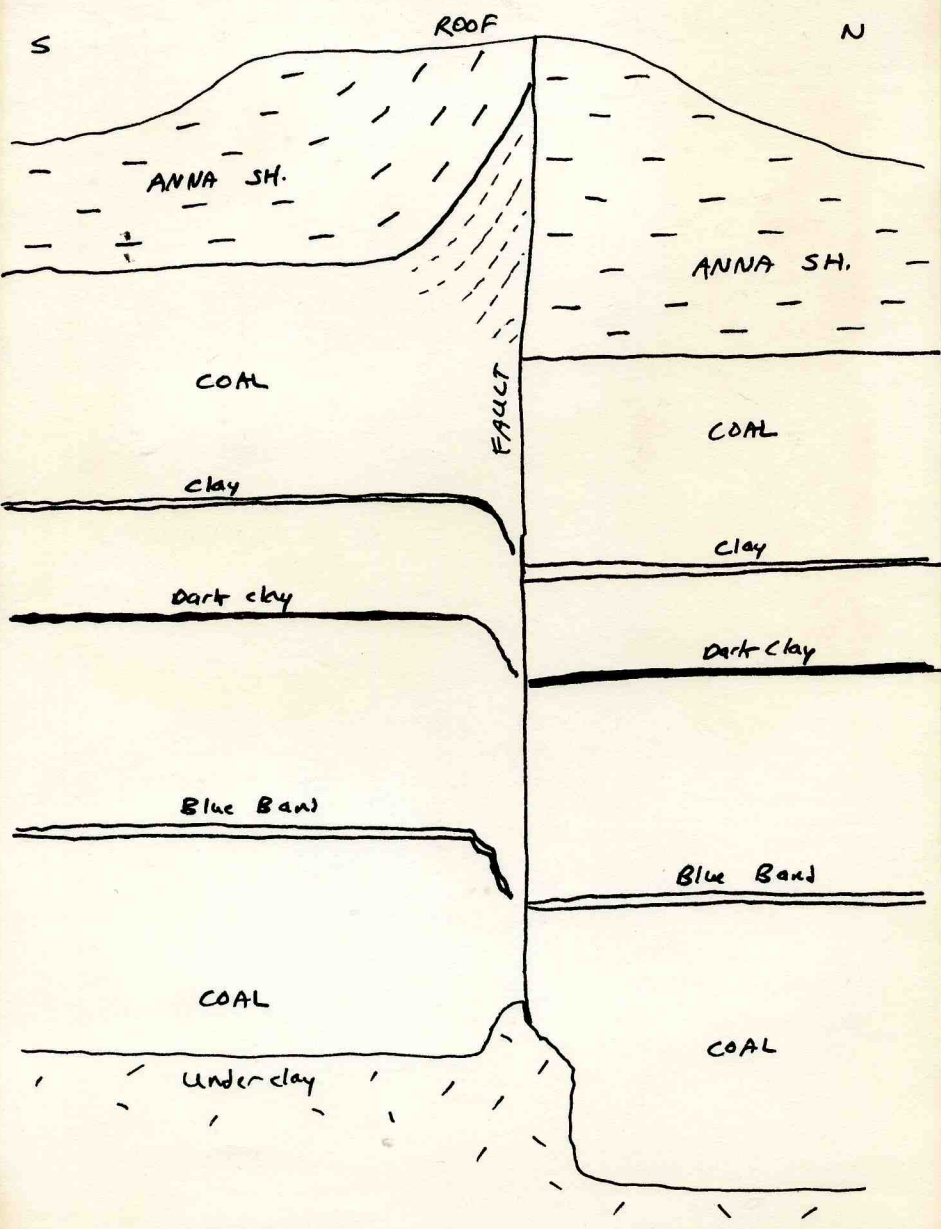 S
ROOF
N
ANNA SH.
ANNA SH.
COAL
FAULT
COAL
Clay
Clay
Dark clay
Dark Clay
Blue Band
Blue Band
COAL
COAL
Underclay